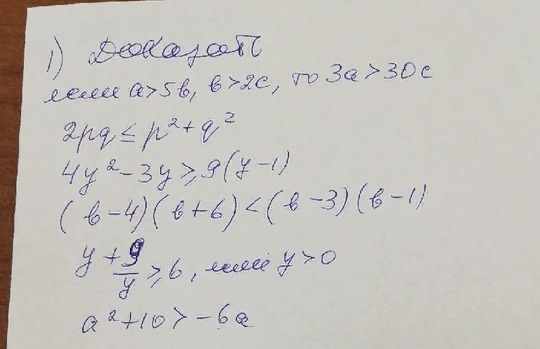 1) Доказать
если a>5b, b>2c, то 3a>30c
2pq ≤ p² + q²
4y² - 3y ≥ 9(y-1)
(b-4)(b+6) < (b-3)(b-1)
y + 9/y ≥ 6, если y>0
a² + 10 > -6a